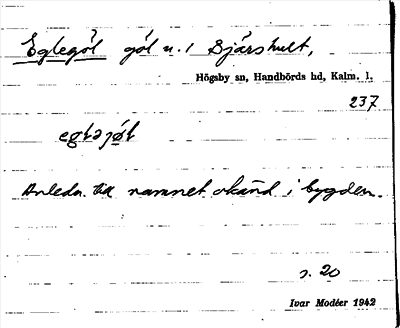 Eglegöl göl n. i Bjärshult,
Högsby sn, Handbörds hd, Kalm. l.
237
Anledn. till namnet okänd i bygden.
s. 20
Ivar Modéer 1942